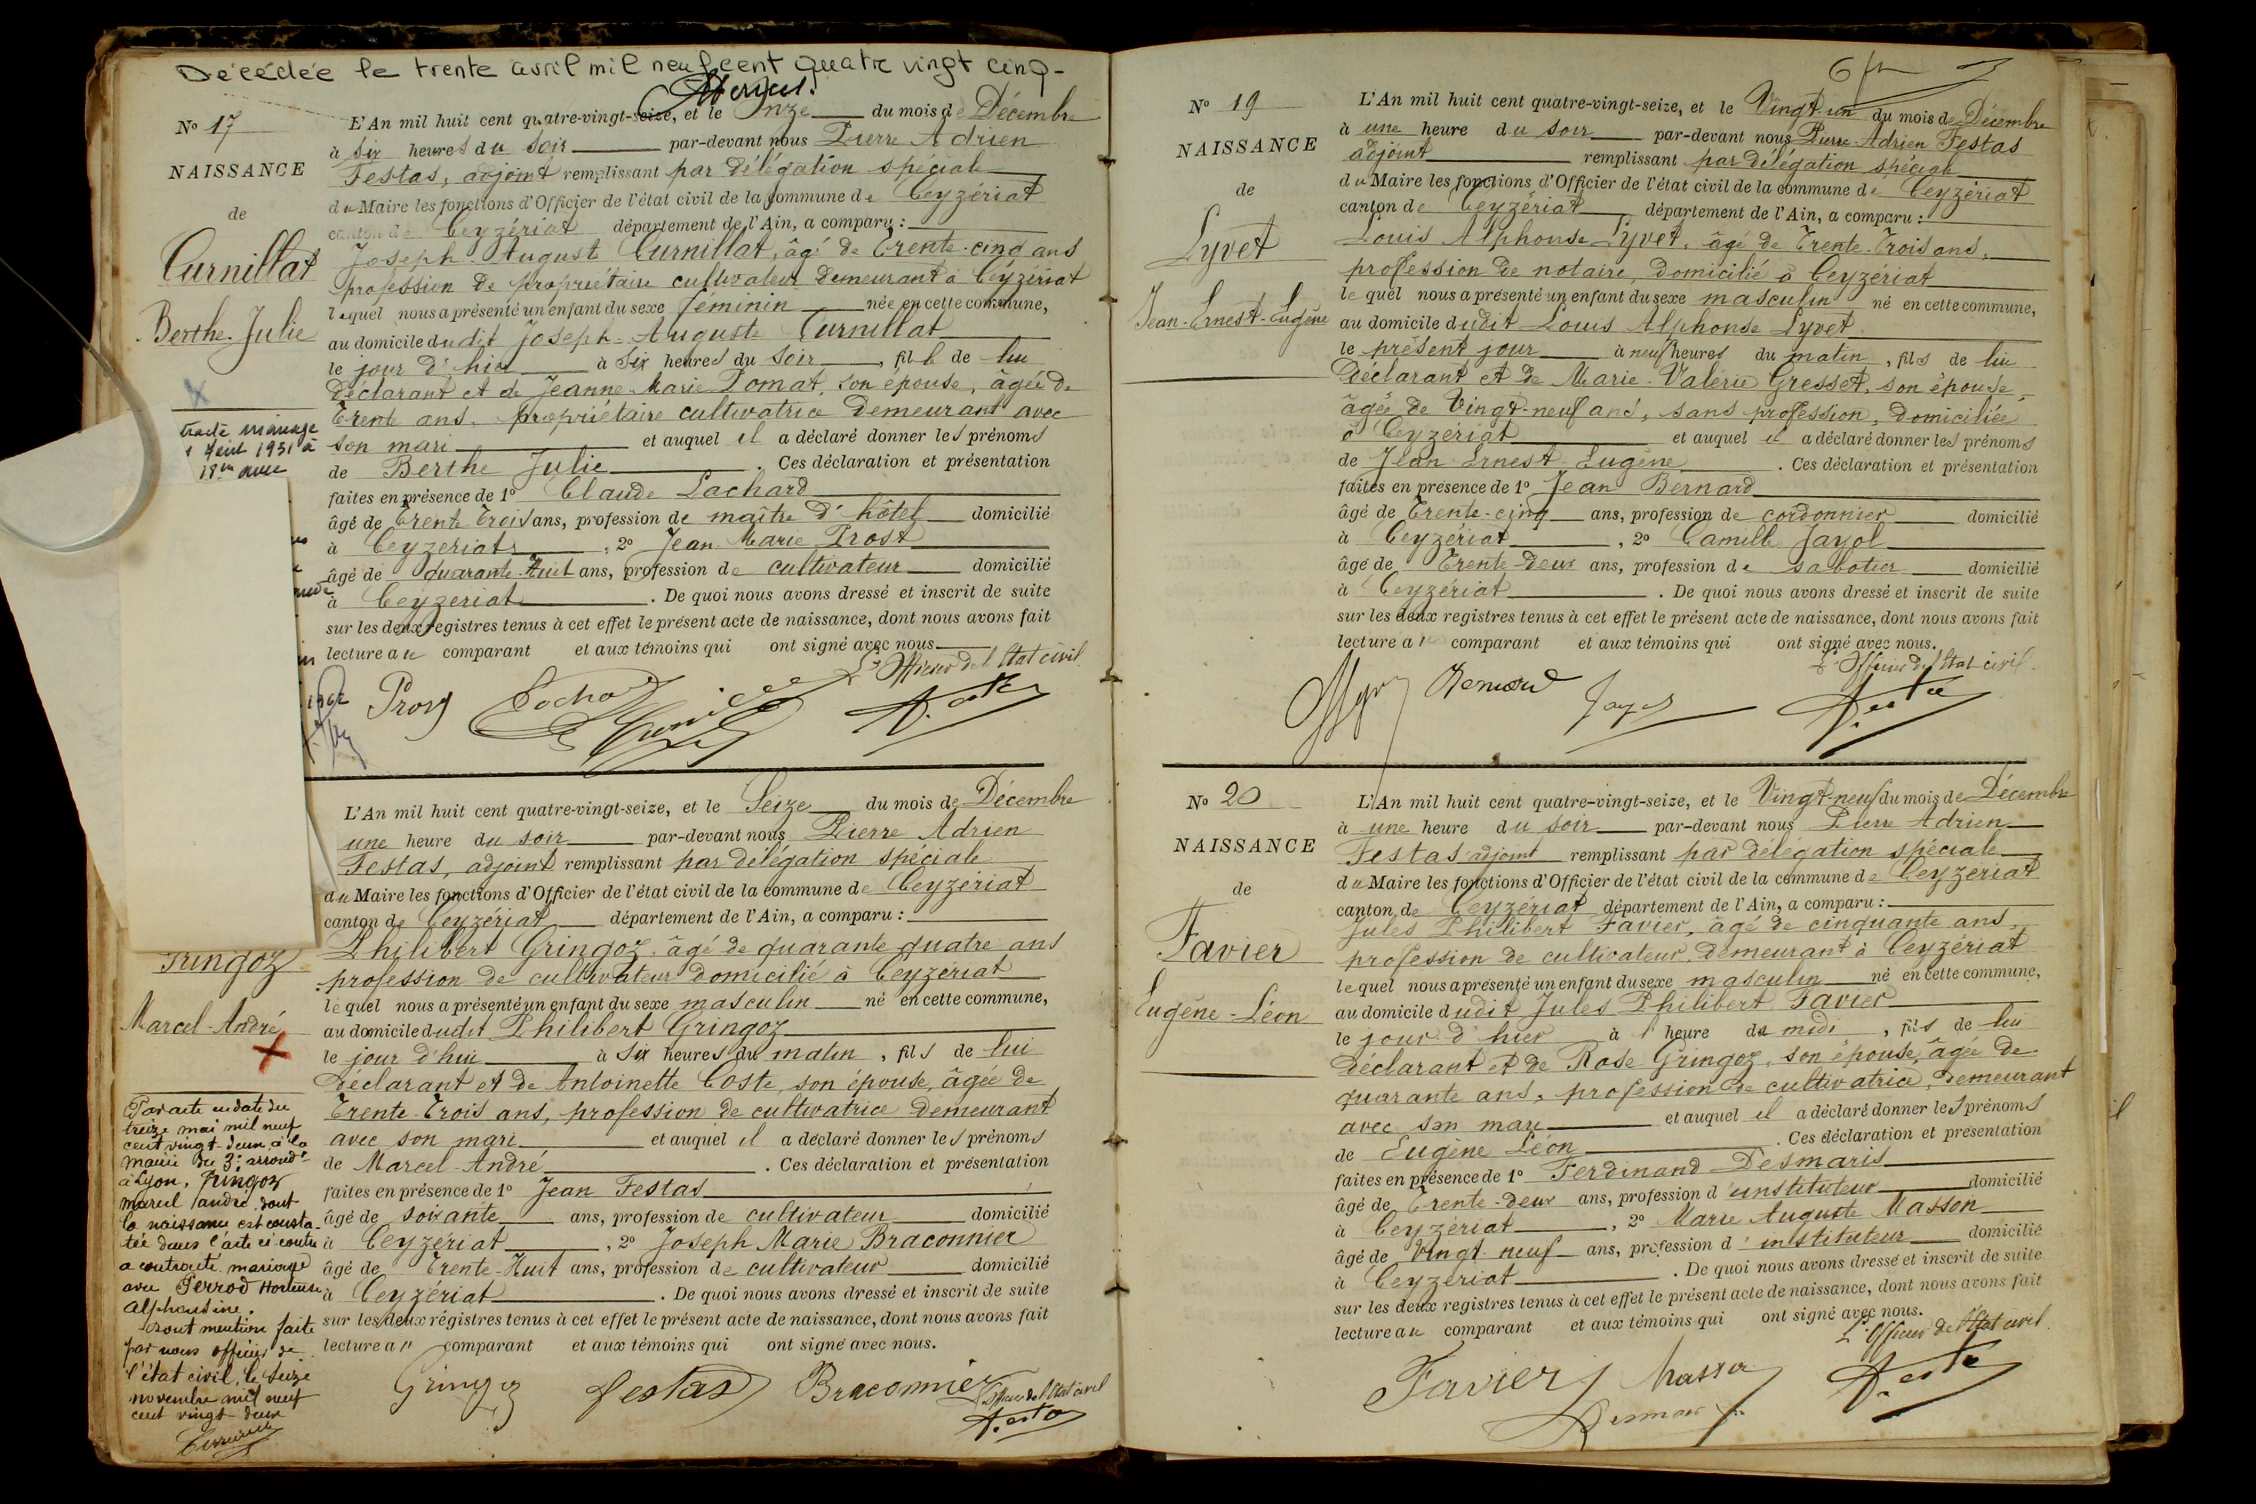 Décédée le trente avril mil neuf cent quatre vingt cinq-
Nº 17
NAISSANCE
de
Curnillat
Berthe-Julie
L'An mil huit cent quatre-vingt-seize, et le Onze du mois de Décembre
à six heures du soir par-devant nous Pierre Adrien
Festas, adjoint remplissant par délégation spéciale
du Maire les fonctions d'Officier de l'état civil de la commune de Ceyzériat
canton de Ceyzériat département de l'Ain, a comparu :
Joseph August Curnillat, âgé de Trente-cinq ans
profession de propriétaire cultivateur demeurant à Ceyzériat
lequel nous a présenté un enfant du sexe féminin née en cette commune,
au domicile dudit Joseph-Auguste Curnillat
le jour d'hier à six heures du soir, fille de lui
déclarant et de Jeanne-Marie Pomat, son épouse, âgée de
Trente ans, propriétaire cultivatrice demeurant avec
son mari et auquel il a déclaré donner les prénoms
de Berthe Julie. Ces déclaration et présentation
faites en présence de 1º Claude Lachard
âgé de Trente Trois ans, profession de maître d'hôtel domicilié
à Ceyzériat, 2º Jean Marie Prost
âgé de quarante-Huit ans, profession de cultivateur domicilié
à Ceyzériat. De quoi nous avons dressé et inscrit de suite
sur les deux registres tenus à cet effet le présent acte de naissance, dont nous avons fait
lecture au comparant et aux témoins qui ont signé avec nous.
L'Officier de l'Etat civil
mariage
1931 à
18
avec
1962
Prost
Gringoz
Marcel-André
L'An mil huit cent quatre-vingt-seize, et le Seize du mois de Décembre
une heure du soir par-devant nous Pierre Adrien
Festas, adjoint remplissant par délégation spéciale
du Maire les fonctions d'Officier de l'état civil de la commune de Ceyzériat
canton de Ceyzériat département de l'Ain, a comparu :
Philibert Gringoz, âgé de quarante quatre ans
profession de cultivateur domicilié à Ceyzériat
lequel nous a présenté un enfant du sexe masculin né en cette commune,
au domicile dudit Philibert Gringoz
le jour d'hui à six heures du matin, fils de lui
déclarant et de Antoinette Coste, son épouse, âgée de
Trente-Trois ans, profession de cultivatrice demeurant
avec son mari et auquel il a déclaré donner les prénoms
de Marcel-André. Ces déclaration et présentation
faites en présence de 1º Jean Festas
âgé de soixante ans, profession de cultivateur domicilié
à Ceyzériat, 2º Joseph Marie Braconnier
âgé de Trente-Huit ans, profession de cultivateur domicilié
à Ceyzériat. De quoi nous avons dressé et inscrit de suite
sur les deux régistres tenus à cet effet le présent acte de naissance, dont nous avons fait
lecture au comparant et aux témoins qui ont signé avec nous.
L'Officier de l'Etat civil
Gringoz Festas Braconnier Festas
Par acte en date du
treize mai mil neuf
cent vingt-deux à la
mairie du 3e arrondt
à Lyon, Gringoz
Marcel André dont
la naissance est consta-
tée dans l'acte ci-contre
a contracté mariage
avec Perrod Hortense
Alphonsine.
Dont mention faite
par nous officier de
l'état civil, le seize
novembre mil neuf
cent vingt-deux
Nº 19
NAISSANCE
de
Lyvet
Jean-Ernest-Eugène
L'An mil huit cent quatre-vingt-seize, et le Vingt-un du mois de Décembre
à une heure du soir par-devant nous Pierre-Adrien Festas
adjoint remplissant par délégation spéciale
du Maire les fonctions d'Officier de l'état civil de la commune de Ceyzériat
canton de Ceyzériat département de l'Ain, a comparu :
Louis Alphonse Lyvet, âgé de Trente-Trois ans,
profession de notaire, domicilié à Ceyzériat
lequel nous a présenté un enfant du sexe masculin né en cette commune,
au domicile dudit Louis Alphonse Lyvet
le présent jour à neuf heures du matin, fils de lui
déclarant et de Marie-Valérie Gresset, son épouse,
âgée de Vingt-neuf ans, sans profession, domiciliée
à Ceyzériat et auquel il a déclaré donner les prénoms
de Jean-Ernest-Eugène. Ces déclaration et présentation
faites en présence de 1º Jean Bernard
âgé de Trente-cinq ans, profession de cordonnier domicilié
à Ceyzériat, 2º Camille Jayol
âgé de Trente-deux ans, profession de sabotier domicilié
à Ceyzériat. De quoi nous avons dressé et inscrit de suite
sur les deux registres tenus à cet effet le présent acte de naissance, dont nous avons fait
lecture au comparant et aux témoins qui ont signé avec nous.
L'Officier de l'Etat civil.
Bernard Festas
Nº 20
NAISSANCE
de
Favier
Eugène-Léon
L'An mil huit cent quatre-vingt-seize, et le Vingt-neuf du mois de Décembre
à une heure du soir par-devant nous Pierre Adrien
Festas adjoint remplissant par délégation spéciale
du Maire les fonctions d'Officier de l'état civil de la commune de Ceyzériat
canton de Ceyzériat département de l'Ain, a comparu :
Jules Philibert Favier, âgé de cinquante ans,
profession de cultivateur, demeurant à Ceyzériat
lequel nous a présenté un enfant du sexe masculin né en cette commune,
au domicile dudit Jules Philibert Favier
le jour d'hier à heure de midi, fils de lui
déclarant et de Rose Gringoz, son épouse, âgée de
quarante ans, profession de cultivatrice, demeurant
avec son mari et auquel il a déclaré donner les prénoms
de Eugène Léon. Ces déclaration et présentation
faites en présence de 1º Ferdinand Desmaris
âgé de Trente-deux ans, profession d'instituteur domicilié
à Ceyzériat, 2º Marie Auguste Masson
âgé de Vingt-neuf ans, profession d'instituteur domicilié
à Ceyzériat. De quoi nous avons dressé et inscrit de suite
sur les deux registres tenus à cet effet le présent acte de naissance, dont nous avons fait
lecture au comparant et aux témoins qui ont signé avec nous.
L'Officier de l'Etat civil.
Favier Masson Festas